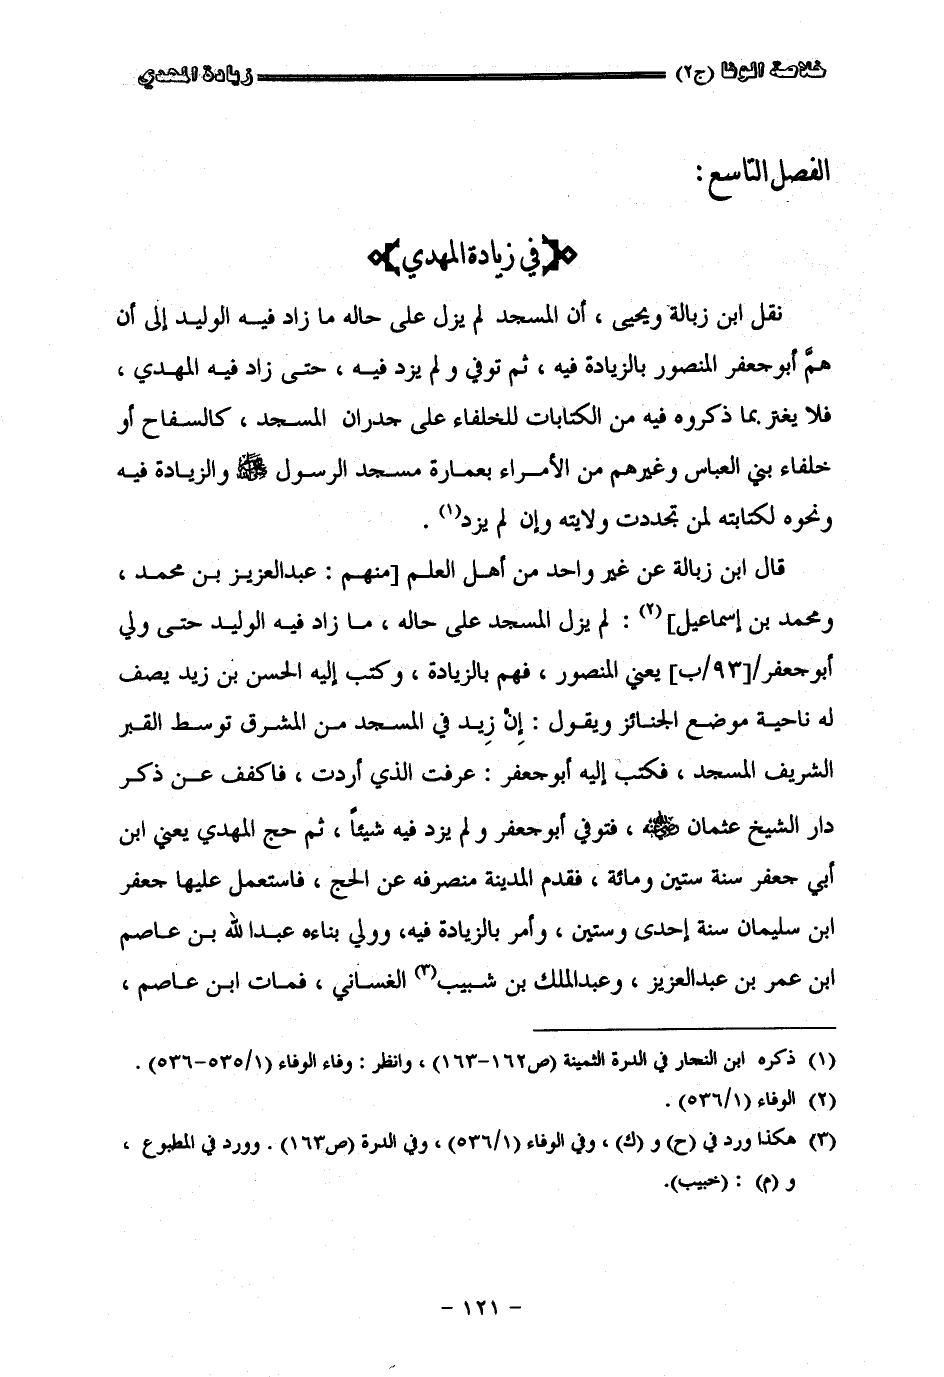 خلاصة الوفا (ج٢) زيادة المهدي
الفصل التاسع :
﴿في زيادة المهدي﴾
نقل ابن زبالة ويحيى ، أن المسجد لم يزل على حاله ما زاد فيه الوليد إلى أن
همَّ أبوجعفر المنصور بالزيادة فيه ، ثم توفي ولم يزد فيه ، حتى زاد فيه المهدي ،
فلا يغتر بما ذكروه فيه من الكتابات للخلفاء على جدران المسجد ، كالسفاح أو
خلفاء بني العباس وغيرهم من الأمراء بعمارة مسجد الرسول ﷺ والزيادة فيه
ونحوه لكتابته لمن تجددت ولايته وإن لم يزد(١) .
قال ابن زبالة عن غير واحد من أهل العلم [منهم : عبدالعزيز بن محمد ،
ومحمد بن إسماعيل](٢) : لم يزل المسجد على حاله ، ما زاد فيه الوليد حتى ولي
أبوجعفر/[٩٣/ب] يعني المنصور ، فهم بالزيادة ، وكتب إليه الحسن بن زيد يصف
له ناحية موضع الجنائز ويقول : إنْ زِيد في المسجد من المشرق توسط القبر
الشريف المسجد ، فكتب إليه أبوجعفر : عرفت الذي أردت ، فاكفف عن ذكر
دار الشيخ عثمان رضي الله عنه ، فتوفي أبوجعفر ولم يزد فيه شيئاً ، ثم حج المهدي يعني ابن
أبي جعفر سنة ستين ومائة ، فقدم المدينة منصرفه عن الحج ، فاستعمل عليها جعفر
ابن سليمان سنة إحدى وستين ، وأمر بالزيادة فيه، وولي بناءه عبدالله بن عاصم
ابن عمر بن عبدالعزيز ، وعبدالملك بن شبيب(٣) الغساني ، فمات ابن عاصم ،
(١) ذكره ابن النجار في الدرة الثمينة (ص١٦٢-١٦٣) ، وانظر : وفاء الوفاء (٥٣٥/١-٥٣٦) .
(٢) الوفاء (٥٣٦/١) .
(٣) هكذا ورد في (ح) و (ك) ، وفي الوفاء (٥٣٦/١) ، وفي الدرة (ص١٦٣) . وورد في المطبوع ،
و (م) : (خبيب).
- ١٢١ -